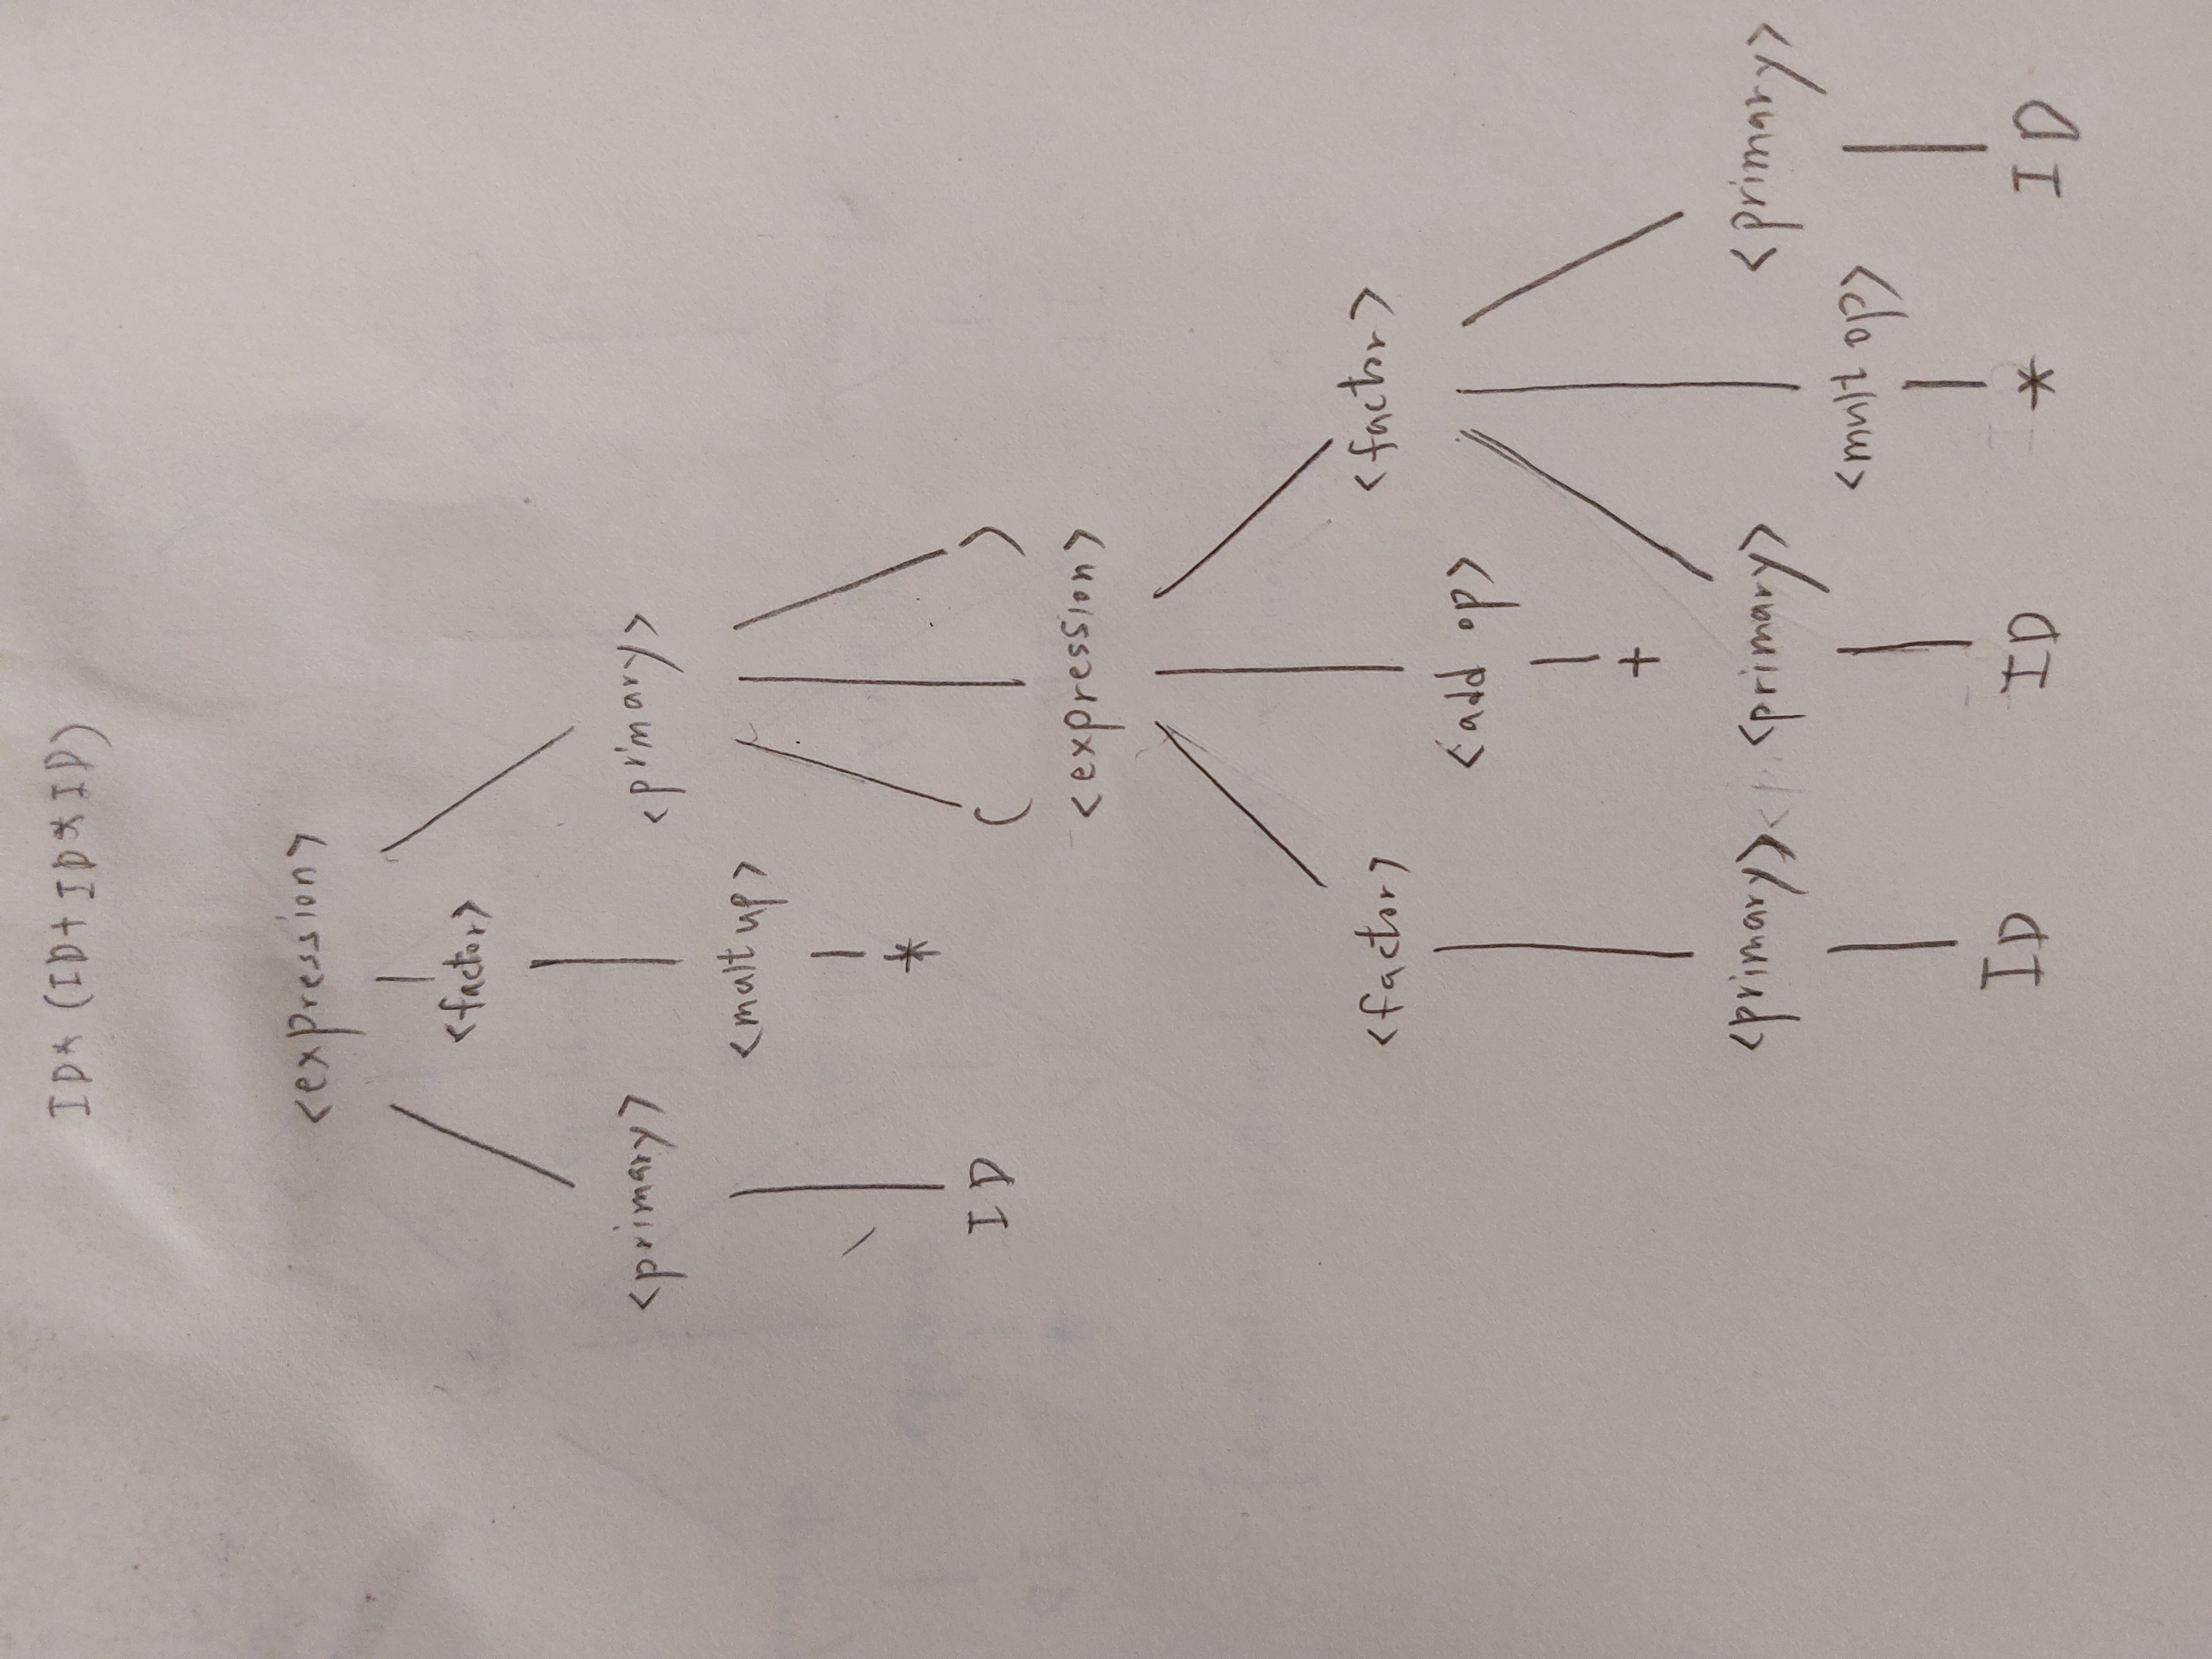 ID* (ID+ID*ID)
<expression>
<factor>
<primary> <primary>
<mult up>
*
ID ( )
<expression>
<factor> <factor>
<add op>
+
<primary> <primary> <primary>
<mult op>
ID ID * ID